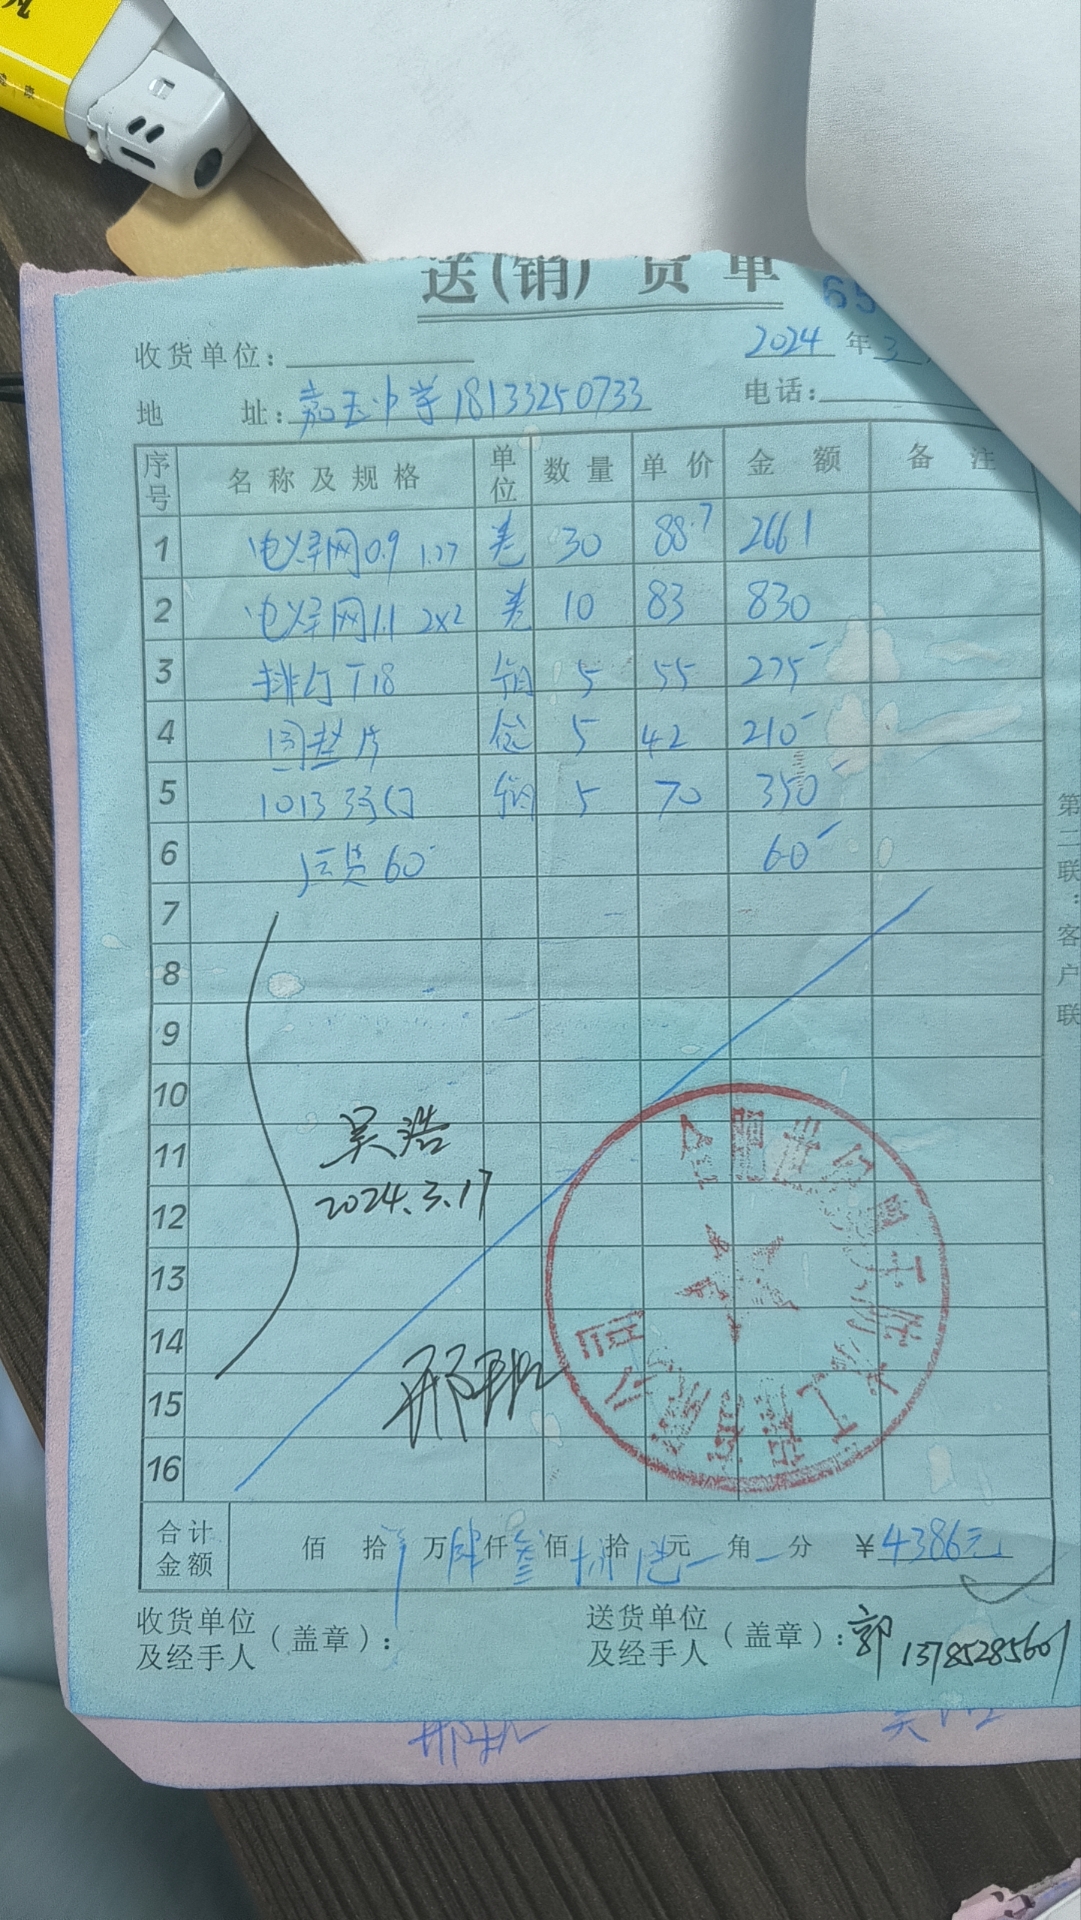 送(销)货单
65
收货单位：
2024年3
地 址：嘉玉中学18133250733 电话：
序号 名称及规格 单位 数量 单价 金额 备注
1 电焊网0.9 1.77 卷 30 88.7 2661
2 电焊网1.1 2x2 卷 10 83 830
3 排钉T18 箱 5 55 275
4 园垫片 袋 5 42 210
5 1013码钉 箱 5 70 350
6 运货60 60
7
8
9
10
11 吴浩
12 2024.3.17
13
14
15
16
合计金额 佰 拾 万肆仟叁佰捌拾元 角 分 ￥4386元
收货单位及经手人（盖章）：
送货单位及经手人（盖章）：郭 13785285601
第二联：客户联